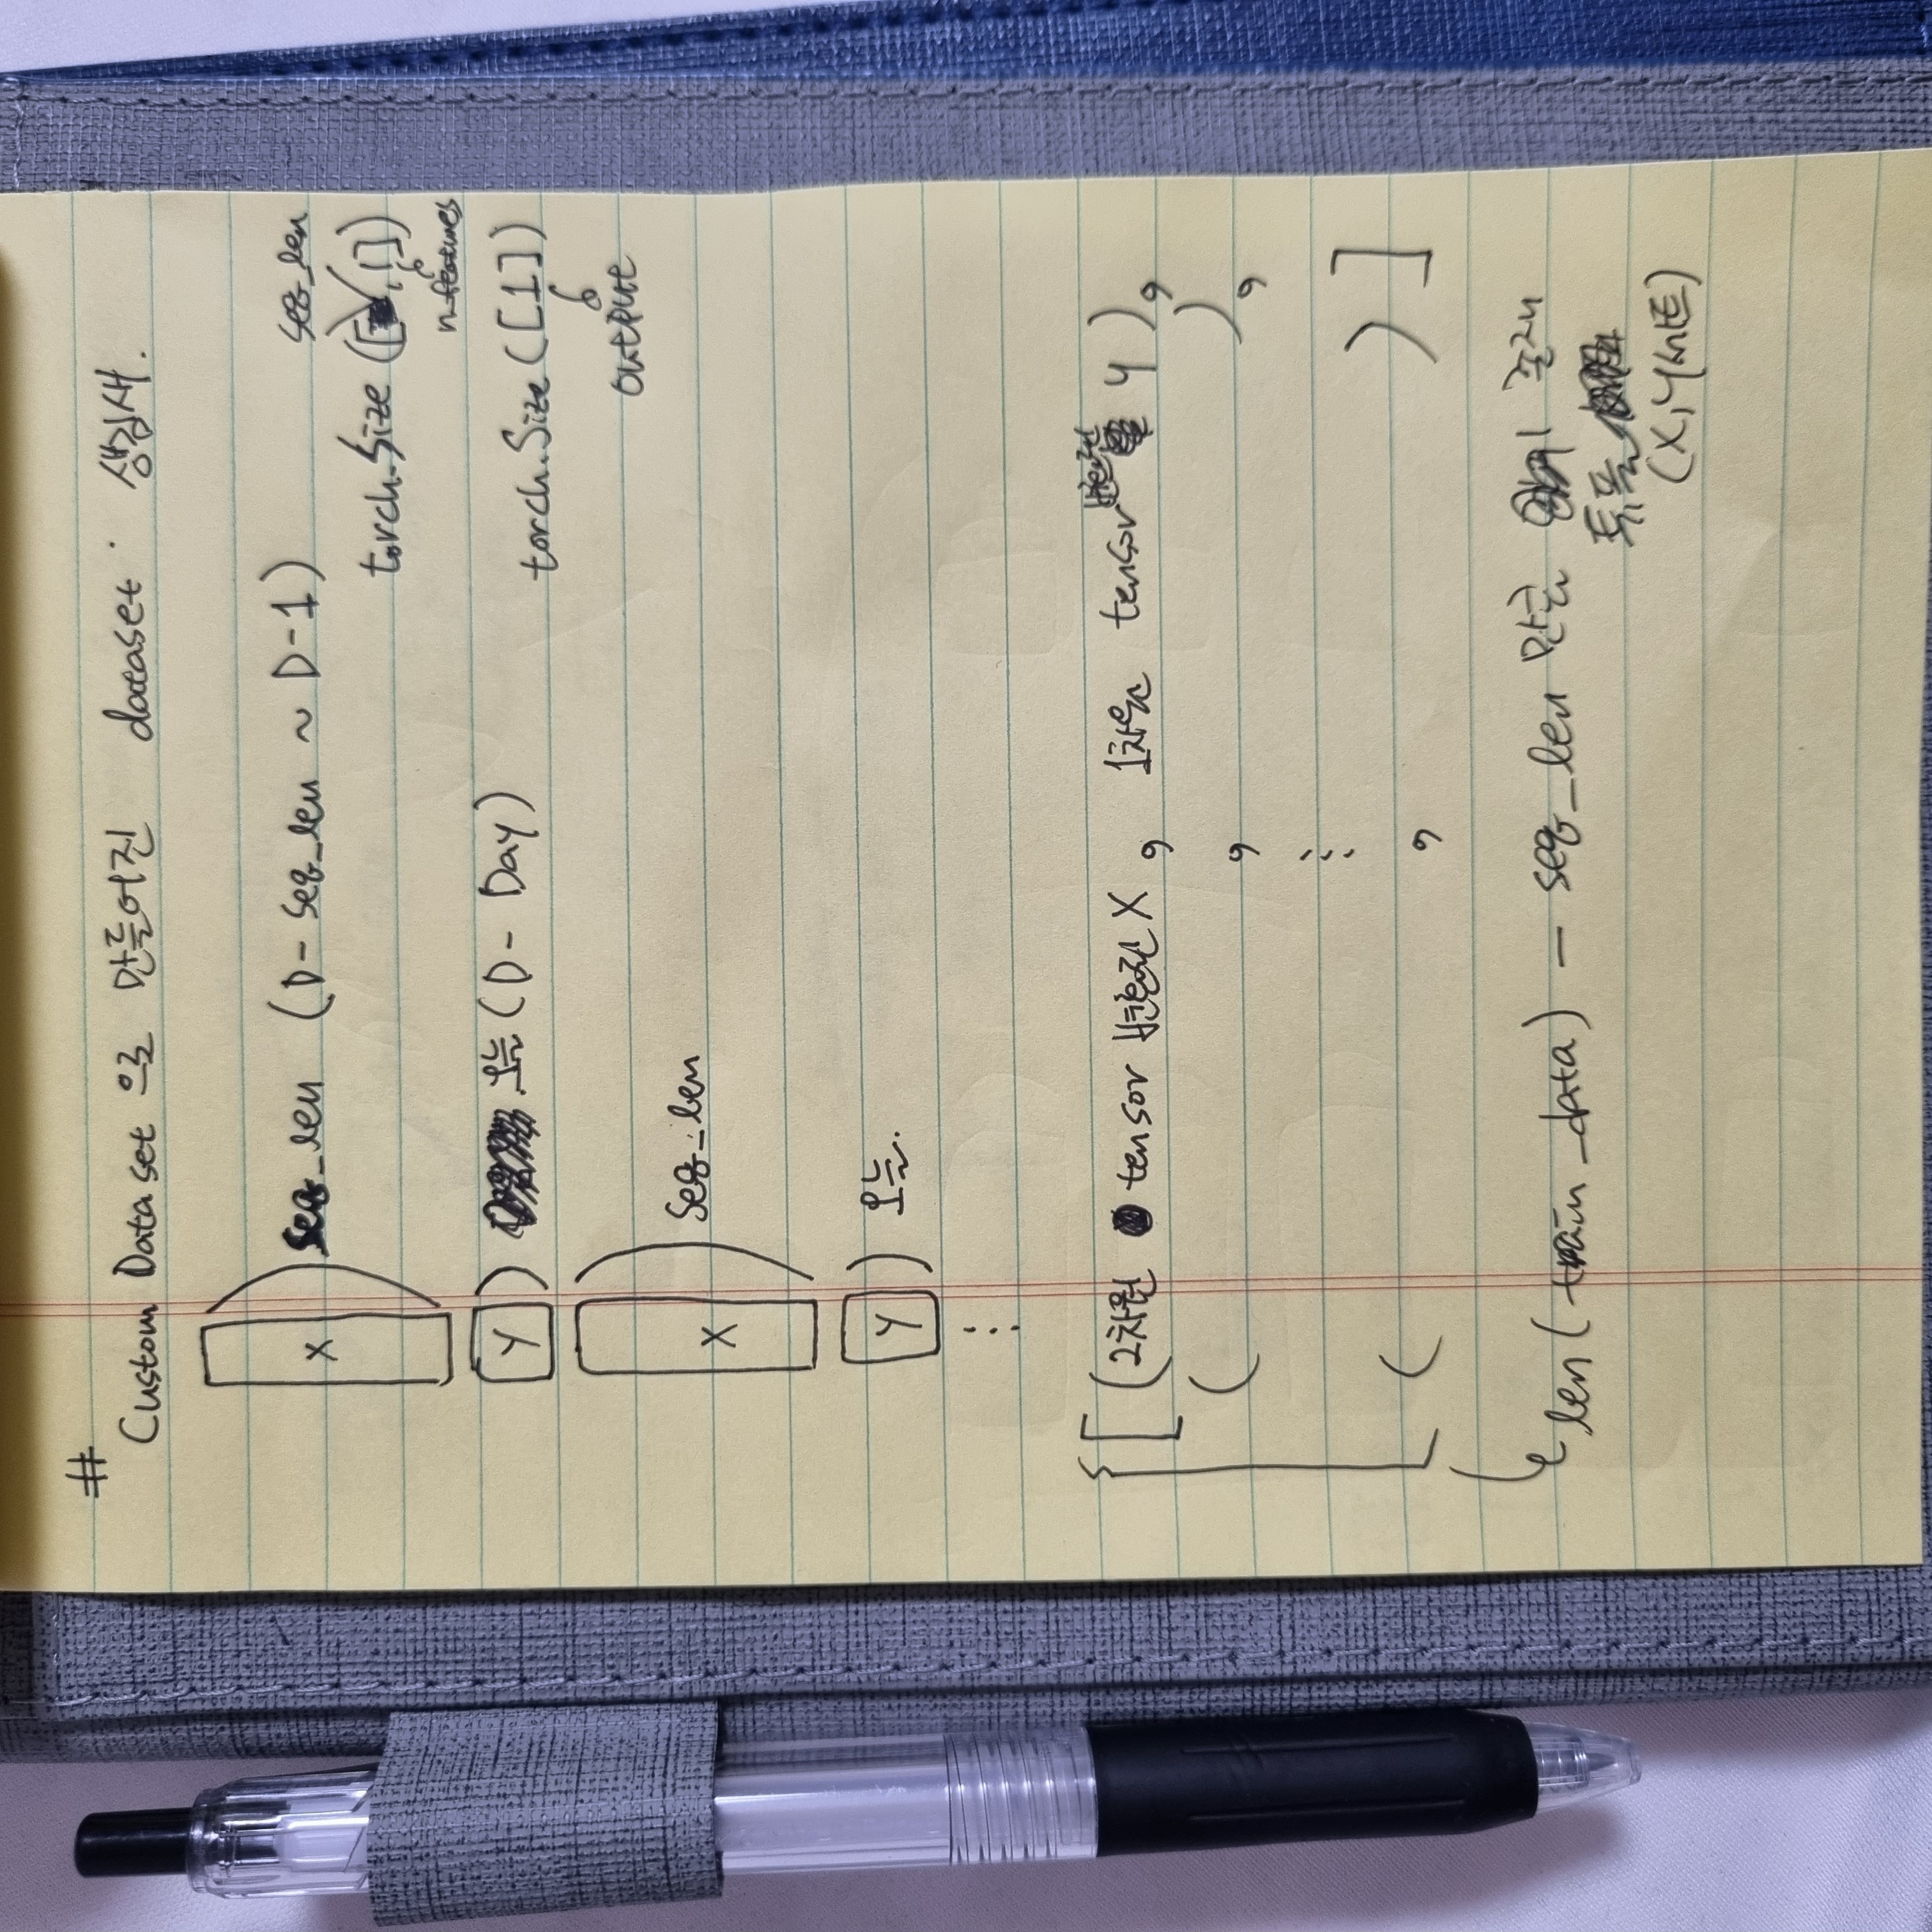 #
Custom Dataset 으로 만들어진 dataset 생김새.
X
seq_len (D- seq_len ~ D-1)
seq_len
torch.Size ([ ,1])
n_features
Y
오늘 (D- Day)
torch.Size ([1])
output
X
seq_len
Y
오늘.
⋮
[ (2차원 tensor 변환된 X , 1차원 tensor 변환된 y ),
( , ),
⋮
( , ) ]
len(train_data) - seq_len 만큼 존재
튜플
(X,y세트)